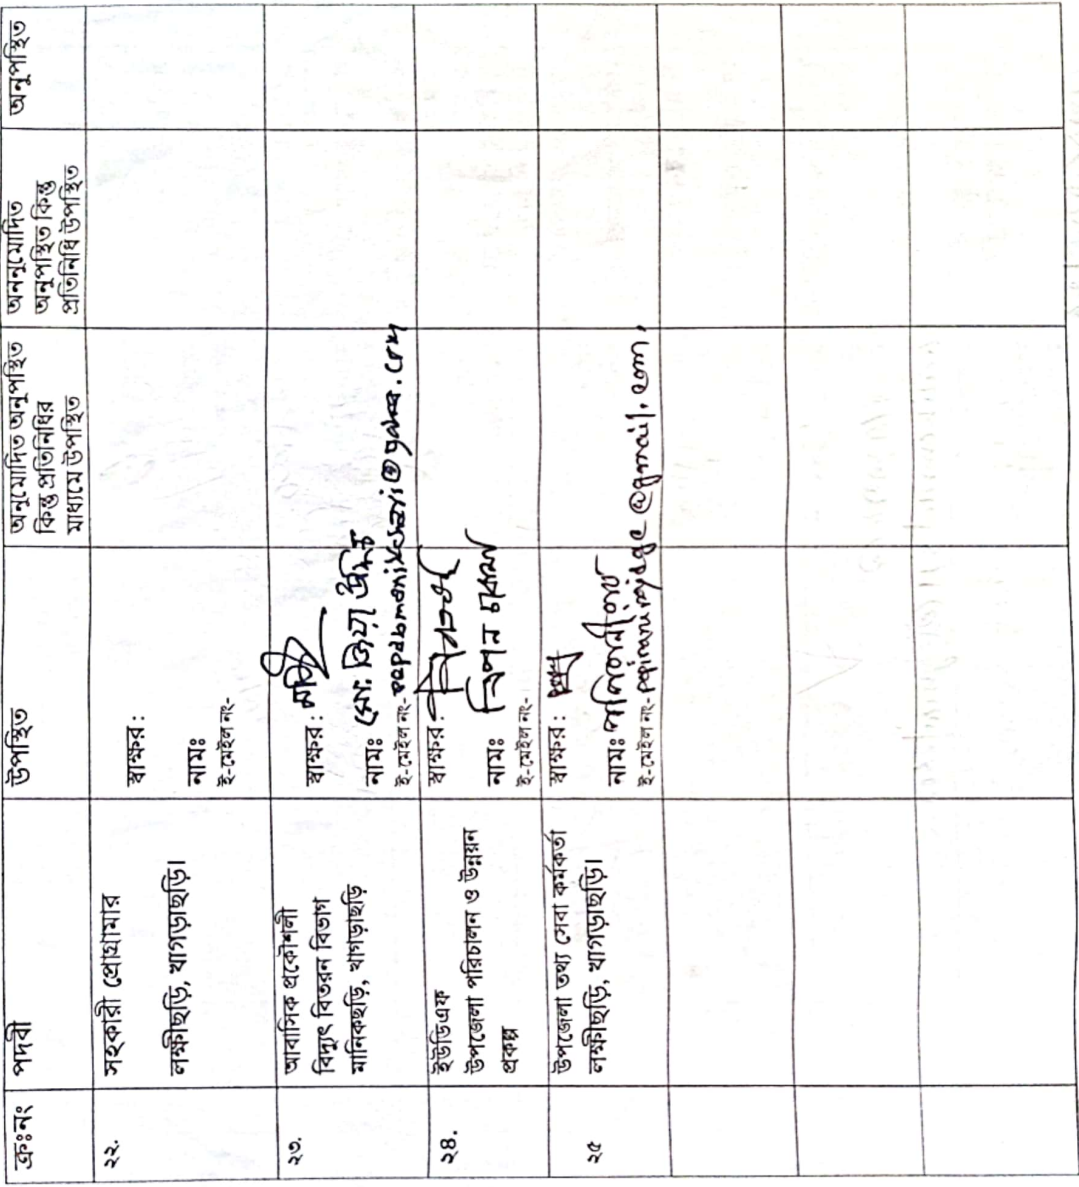 ক্রঃনং পদবী উপস্থিত অনুমোদিত অনুপস্থিত কিন্তু প্রতিনিধির মাধ্যমে উপস্থিত অননুমোদিত অনুপস্থিত কিন্তু প্রতিনিধি উপস্থিত অনুপস্থিত
২২. সহকারী প্রোগ্রামার
লক্ষীছড়ি, খাগড়াছড়ি।
স্বাক্ষর :
নামঃ
ই-মেইল নং-
২৩. আবাসিক প্রকৌশলী
বিদ্যুৎ বিতরন বিভাগ
মানিকছড়ি, খাগড়াছড়ি
স্বাক্ষর :
নামঃ মো: জিয়া উদ্দিন
ই-মেইল নং-
২৪. ইউডিএফ
উপজেলা পরিচালন ও উন্নয়ন
প্রকল্প
স্বাক্ষর :
নামঃ রিপন চাকমা
ই-মেইল নং-
২৫ উপজেলা তথ্য সেবা কর্মকর্তা
লক্ষীছড়ি, খাগড়াছড়ি।
স্বাক্ষর :
নামঃ
ই-মেইল নং- @gmail.com,